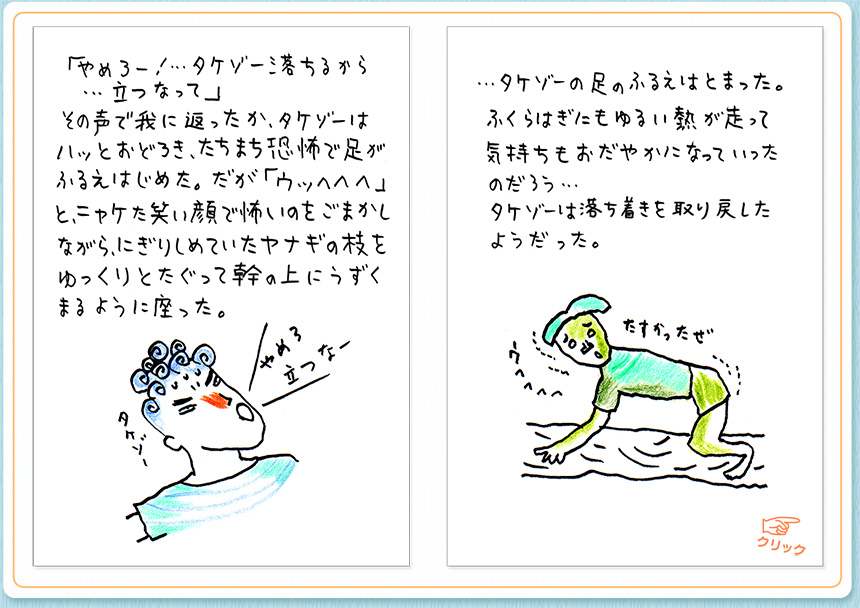 「やめろー！…タケゾー落ちるから
…立つなって」
その声で我に返ったか、タケゾーは
ハッとおどろき、たちまち恐怖で足が
ふるえはじめた。だが「ウッヘヘヘ」
と、ニヤケた笑い顔で怖いのをごまかし
ながら、にぎりしめていたヤナギの枝を
ゆっくりとたぐって幹の上にうずく
まるように座った。
やめろ
立つなー
タケゾー
…タケゾーの足のふるえはとまった。
ふくらはぎにもゆるい熱が走って
気持ちもおだやかになっていった
のだろう…
タケゾーは落ち着きを取り戻した
ようだった。
たすかったぜ
ウヘヘヘヘ
クリック